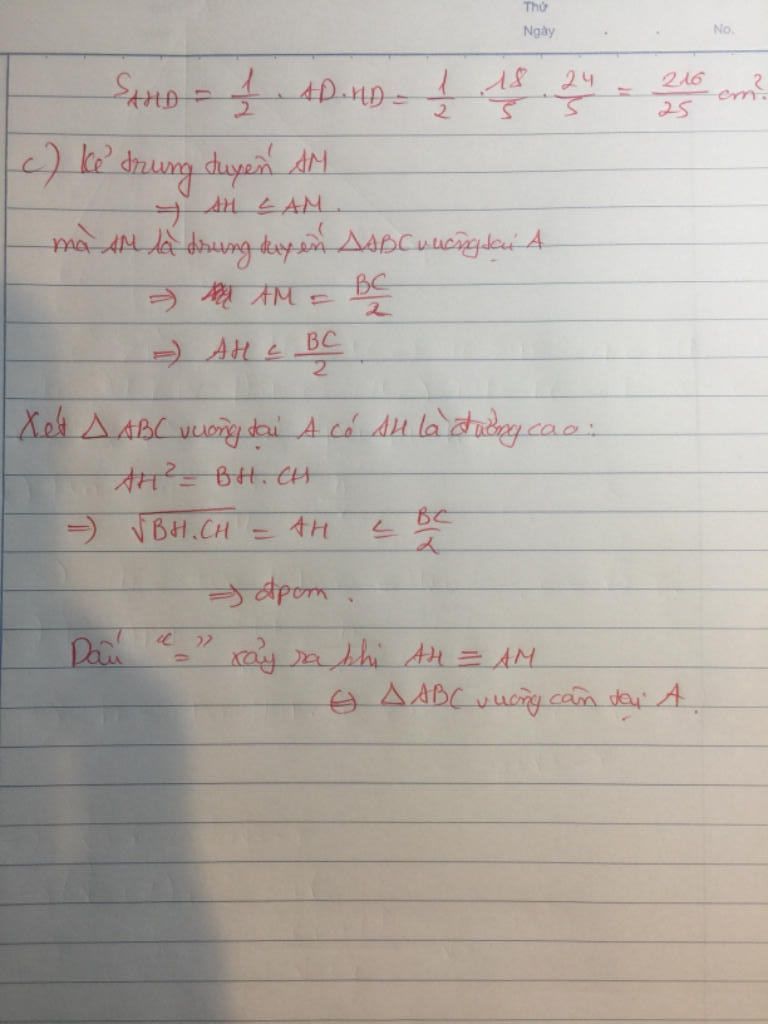 Thứ
Ngày . . No.
S_AHD = 1/2 . AD.HD = 1/2 . 18/5 . 24/5 = 216/25 cm².
c) Kẻ trung tuyến AM
⇒ AH ≤ AM.
mà AM là trung tuyến △ABC vuông tại A
⇒ AM = BC/2
⇒ AH ≤ BC/2.
Xét △ABC vuông tại A có AH là đường cao:
AH² = BH.CH
⇒ √BH.CH = AH ≤ BC/2
⇒ đpcm.
Dấu "=" xảy ra khi AH ≡ AM
⇔ △ABC vuông cân tại A.